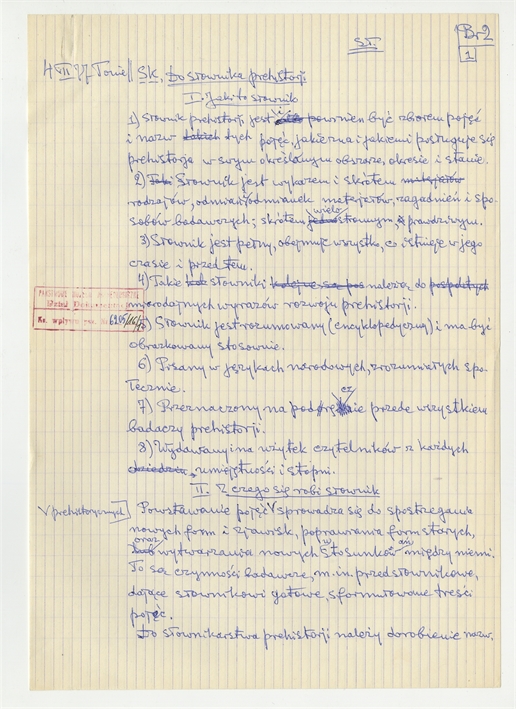 ST.
Br2
1
4 VII 77 Toniell SK, Do słownika prehistorji
I. Jaki to słownik
1) Słownik prehistorji jest powinien być zbiorem pojęć
i nazw takich tych pojęć, jakie zna i jakiemi posługuje się
prehistorja w swym określonym obszarze, okresie i stanie.
2) Taki Słownik jest wykazem i skrótem materjałów
rodzajów, odmian i odmianek materjałów, zagadnień i spo-
sobów badawczych; skrótem jednostronnym, wielo prawdziwym.
3) Słownik jest pełny, obejmuje wszystko, co istnieje w jego
czasie i przed tem.
4) Takie słowniki kolejne, są pos należą do pospolitych
miarodajnych wyrazów rozwoju prehistorji.
5) Słownik jest rozumowany (encyklopedyczny) i ma być
obrazkowany stosownie.
6) Pisany w językach narodowych, zrozumiałych spo-
łecznie.
7) Przeznaczony na podręcznie przede wszystkiem
badaczy prehistorji.
8) Wydawany na użytek czytelników z każdych
dziedzin, umiejętności i stopni.
II. Z czego się robi słownik
V prehistorycznych] Powstawanie pojęć V sprowadza się do spostrzegania
nowych form i zjawisk, poprawiania form starych,
oraz wytwarzania nowych stosunków między niemi.
To są czynności badawcze, m.in. przedsłownikowe,
dające słownikowi gotowe, sformułowane treści
pojęć.
Do słownikarstwa prehistorji należy dorobienie nazw.